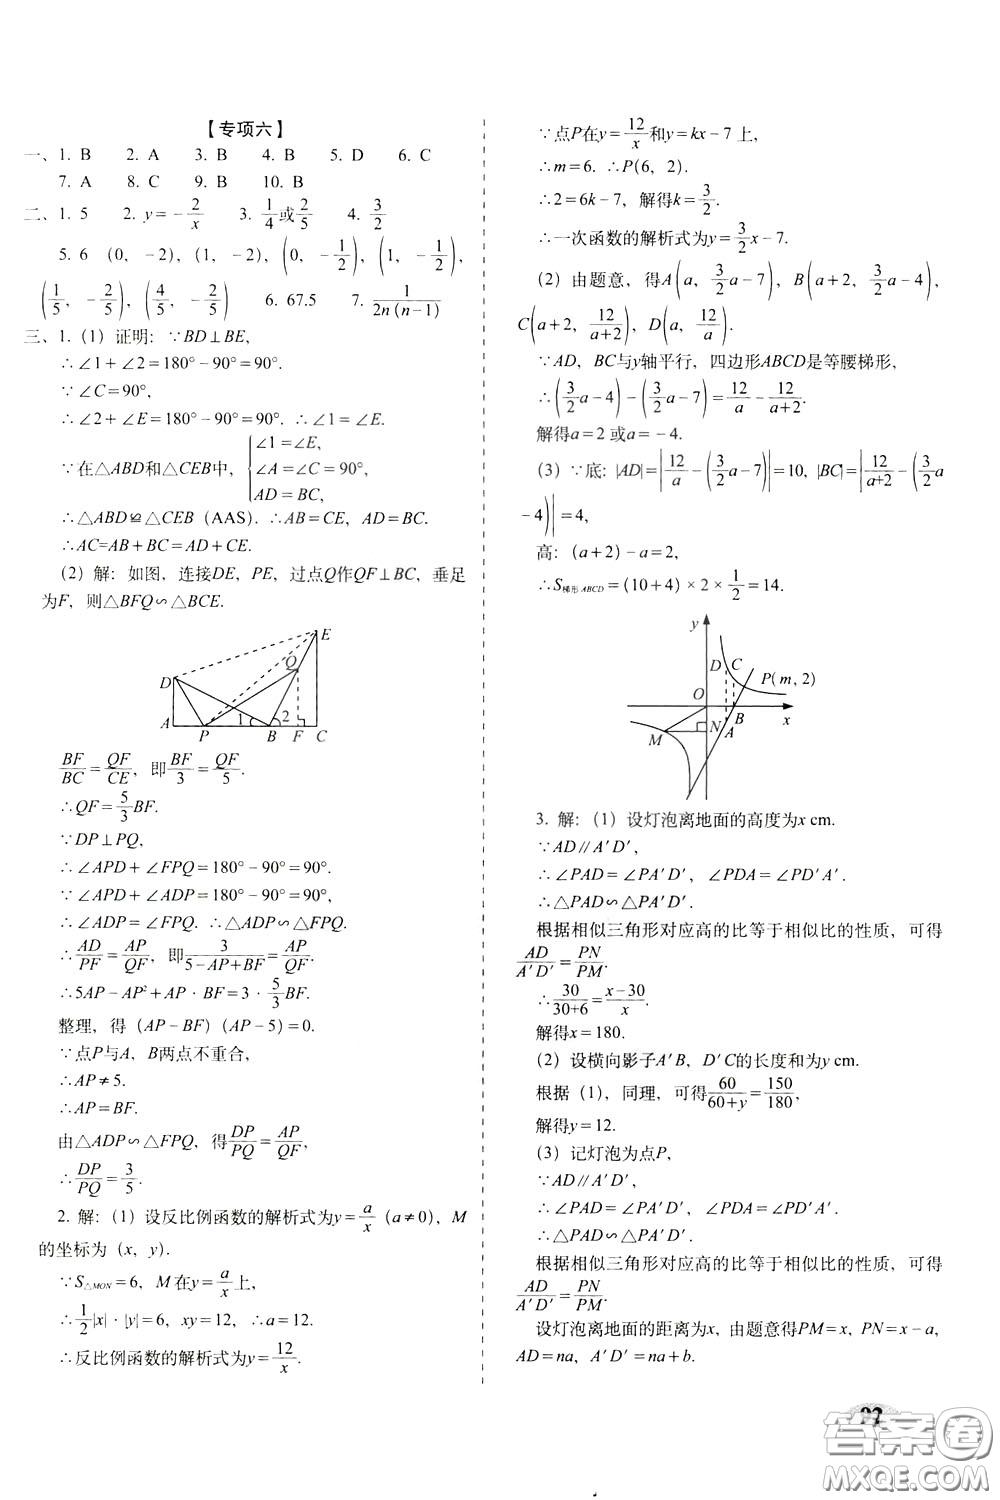 【专项六】
一、1. B 2. A 3. B 4. B 5. D 6. C
7. A 8. C 9. B 10. B
二、1. 5 2. y=-2/x 3. 1/4或2/5 4. 3/2
5. 6 (0, -2), (1, -2), (0, -1/2), (1, -1/2),
(1/5, -2/5), (4/5, -2/5) 6. 67.5 7. 1/2n(n-1)
三、1. (1) 证明: ∵BD⊥BE,
∴∠1+∠2=180°-90°=90°.
∵∠C=90°,
∴∠2+∠E=180°-90°=90°. ∴∠1=∠E.
∵在△ABD和△CEB中, {∠1=∠E, ∠A=∠C=90°, AD=BC,
∴△ABD≌△CEB (AAS). ∴AB=CE, AD=BC.
∴AC=AB+BC=AD+CE.
(2) 解: 如图, 连接DE, PE, 过点Q作QF⊥BC, 垂足
为F, 则△BFQ∽△BCE.
E
Q
D
1 2
A P B F C
BF/BC=QF/CE, 即BF/3=QF/5.
∴QF=5/3BF.
∵DP⊥PQ,
∴∠APD+∠FPQ=180°-90°=90°.
∵∠APD+∠ADP=180°-90°=90°,
∴∠ADP=∠FPQ. ∴△ADP∽△FPQ.
∴AD/PF=AP/QF, 即3/5-AP+BF=AP/QF.
∴5AP-AP²+AP·BF=3·5/3BF.
整理, 得 (AP-BF) (AP-5)=0.
∵点P与A, B两点不重合,
∴AP≠5.
∴AP=BF.
由△ADP∽△FPQ, 得DP/PQ=AP/QF,
∴DP/PQ=3/5.
2. 解: (1) 设反比例函数的解析式为y=a/x (a≠0), M
的坐标为 (x, y).
∵S△MON=6, M在y=a/x上,
∴1/2|x|·|y|=6, xy=12, ∴a=12.
∴反比例函数的解析式为y=12/x.
∵点P在y=12/x和y=kx-7上,
∴m=6. ∴P(6, 2).
∴2=6k-7, 解得k=3/2.
∴一次函数的解析式为y=3/2x-7.
(2) 由题意, 得A(a, 3/2a-7), B(a+2, 3/2a-4),
C(a+2, 12/a+2), D(a, 12/a).
∵AD, BC与y轴平行, 四边形ABCD是等腰梯形,
∴(3/2a-4)-(3/2a-7)=12/a-12/a+2.
解得a=2 或a=-4.
(3) ∵底: |AD|=|12/a-(3/2a-7)|=10, |BC|=|12/a+2-(3/2a
-4)|=4,
高: (a+2)-a=2,
∴S梯形ABCD=(10+4)×2×1/2=14.
y
D C
P(m, 2)
O
B x
M N A
3. 解: (1) 设灯泡离地面的高度为x cm.
∵AD∥A′D′,
∴∠PAD=∠PA′D′, ∠PDA=∠PD′A′.
∴△PAD∽△PA′D′.
根据相似三角形对应高的比等于相似比的性质, 可得
AD/A′D′=PN/PM.
∴30/30+6=x-30/x.
解得x=180.
(2) 设横向影子A′B, D′C的长度和为y cm.
根据 (1), 同理, 可得60/60+y=150/180,
解得y=12.
(3) 记灯泡为点P,
∵AD∥A′D′,
∴∠PAD=∠PA′D′, ∠PDA=∠PD′A′.
∴△PAD∽△PA′D′.
根据相似三角形对应高的比等于相似比的性质, 可得
AD/A′D′=PN/PM.
设灯泡离地面的距离为x, 由题意得PM=x, PN=x-a,
AD=na, A′D′=na+b.
答案圈
MXQE.COM